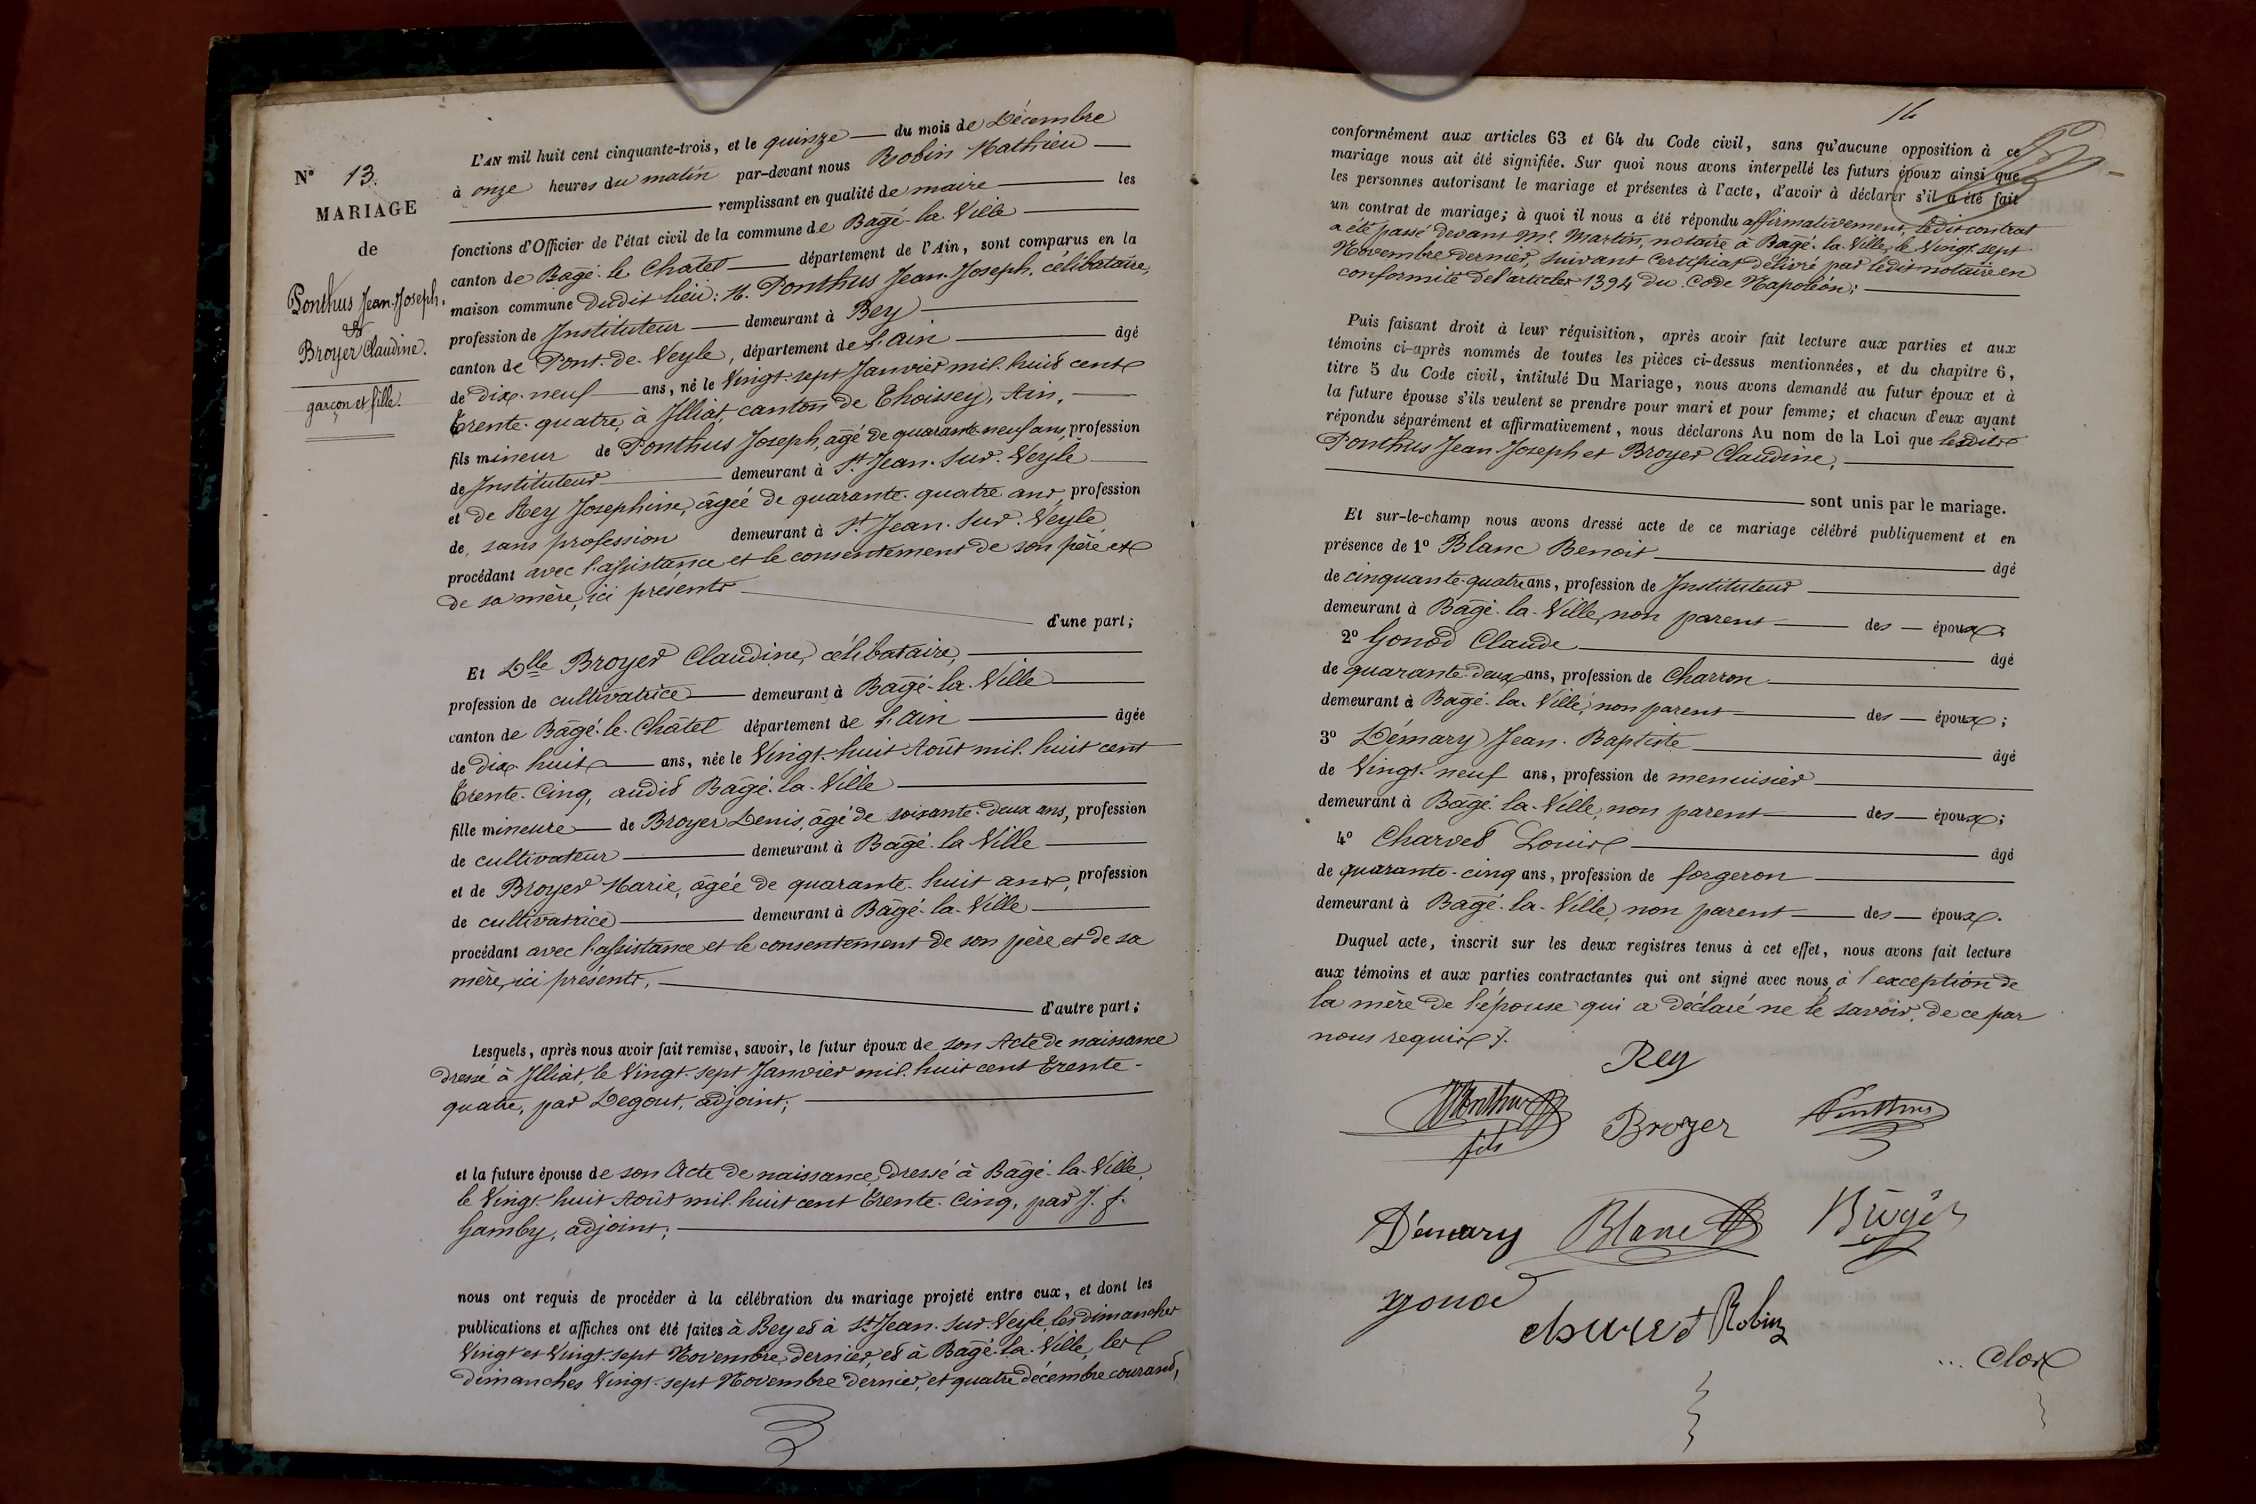 N° 13.
MARIAGE
de
Ponthus Jean-Joseph.
et
Broyer Claudine.
garçon et fille.
L'AN mil huit cent cinquante-trois, et le quinze du mois de Décembre
à onze heures du matin par-devant nous Robin Mathieu
remplissant en qualité de maire les
fonctions d'Officier de l'état civil de la commune de Bâgé-la-Ville
canton de Bâgé-le-Châtel département de l'Ain, sont comparus en la
maison commune dudit lieu: M. Ponthus Jean-Joseph, célibataire,
profession de Instituteur demeurant à Bey
canton de Pont-de-Veyle, département de l'Ain âgé
de dix-neuf ans, né le Vingt-sept Janvier mil-huit cent
Trente-quatre, à Illiat, canton de Thoissey, Ain,
fils mineur de Ponthus Joseph, âgé de quarante-neuf ans, profession
de Instituteur demeurant à St Jean-sur-Veyle
et de Rey Josephine, âgée de quarante-quatre ans, profession
de, sans profession demeurant à St Jean-sur-Veyle,
procédant avec l'assistance et le consentement de son père et
de sa mère, ici présents
d'une part;
Et Dlle Broyer Claudine, célibataire,
profession de cultivatrice demeurant à Bâgé-la-Ville
canton de Bâgé-le-Châtel département de l'Ain âgée
de dix huit ans, née le Vingt-huit Août mil-huit cent
Trente-Cinq, audit Bâgé-la-Ville
fille mineure de Broyer Denis, âgé de soixante-deux ans, profession
de cultivateur demeurant à Bâgé-la-Ville
et de Broyer Marie, âgée de quarante-huit ans, profession
de cultivatrice demeurant à Bâgé-la-Ville
procédant avec l'assistance et le consentement de son père et de sa
mère, ici présents,
d'autre part;
Lesquels, après nous avoir fait remise, savoir, le futur époux de son Acte de naissance
dressé à Illiat, le Vingt-sept Janvier mil-huit cent Trente-
quatre, par Degout, adjoint;
et la future épouse de son Acte de naissance, dressé à Bâgé-la-Ville,
le Vingt-huit Août mil-huit cent Trente-Cinq, par J. f.
Gamby, adjoint;
nous ont requis de procéder à la célébration du mariage projeté entre eux, et dont les
publications et affiches ont été faites à Bey et à St Jean-sur-Veyle, les dimanches
Vingt et Vingt-sept Novembre dernier, et à Bâgé-la-Ville, les
dimanches Vingt-sept Novembre dernier, et quatre décembre courant,
14
conformément aux articles 63 et 64 du Code civil, sans qu'aucune opposition à ce
mariage nous ait été signifiée. Sur quoi nous avons interpellé les futurs époux ainsi que
les personnes autorisant le mariage et présentes à l'acte, d'avoir à déclarer s'il a été fait
un contrat de mariage; à quoi il nous a été répondu affirmativement, ledit contrat
a été passé devant Me. Martin, notaire à Bâgé-la-Ville, le Vingt-sept
Novembre dernier, suivant Certificat délivré par ledit notaire en
conformité de l'article 1394 du Code Napoléon;
Puis faisant droit à leur réquisition, après avoir fait lecture aux parties et aux
témoins ci-après nommés de toutes les pièces ci-dessus mentionnées, et du chapitre 6,
titre 5 du Code civil, intitulé Du Mariage, nous avons demandé au futur époux et à
la future épouse s'ils veulent se prendre pour mari et pour femme; et chacun d'eux ayant
répondu séparément et affirmativement, nous déclarons Au nom de la Loi que lesdits
Ponthus Jean Joseph et Broyer Claudine,
sont unis par le mariage.
Et sur-le-champ nous avons dressé acte de ce mariage célébré publiquement et en
présence de 1° Blanc Benoit âgé
de cinquante-quatre ans, profession de Instituteur
demeurant à Bâgé-la-Ville, non parent des époux
2° Gonod Claude âgé
de quarante-deux ans, profession de Charron
demeurant à Bâgé-la-Ville, non parent des époux;
3° Démary Jean-Baptiste âgé
de Vingt-neuf ans, profession de menuisier
demeurant à Bâgé-la-Ville, non parent des époux;
4° Charvet Louis âgé
de quarante-cinq ans, profession de forgeron
demeurant à Bâgé-la-Ville, non parent des époux.
Duquel acte, inscrit sur les deux registres tenus à cet effet, nous avons fait lecture
aux témoins et aux parties contractantes qui ont signé avec nous, à l'exception de
la mère de l'épouse qui a déclaré ne le savoir, de ce par
nous requis.
Rey
Ponthus fils Broyer Ponthus
Démary Blanc Broyer
gonod
charvet Robin
Clos